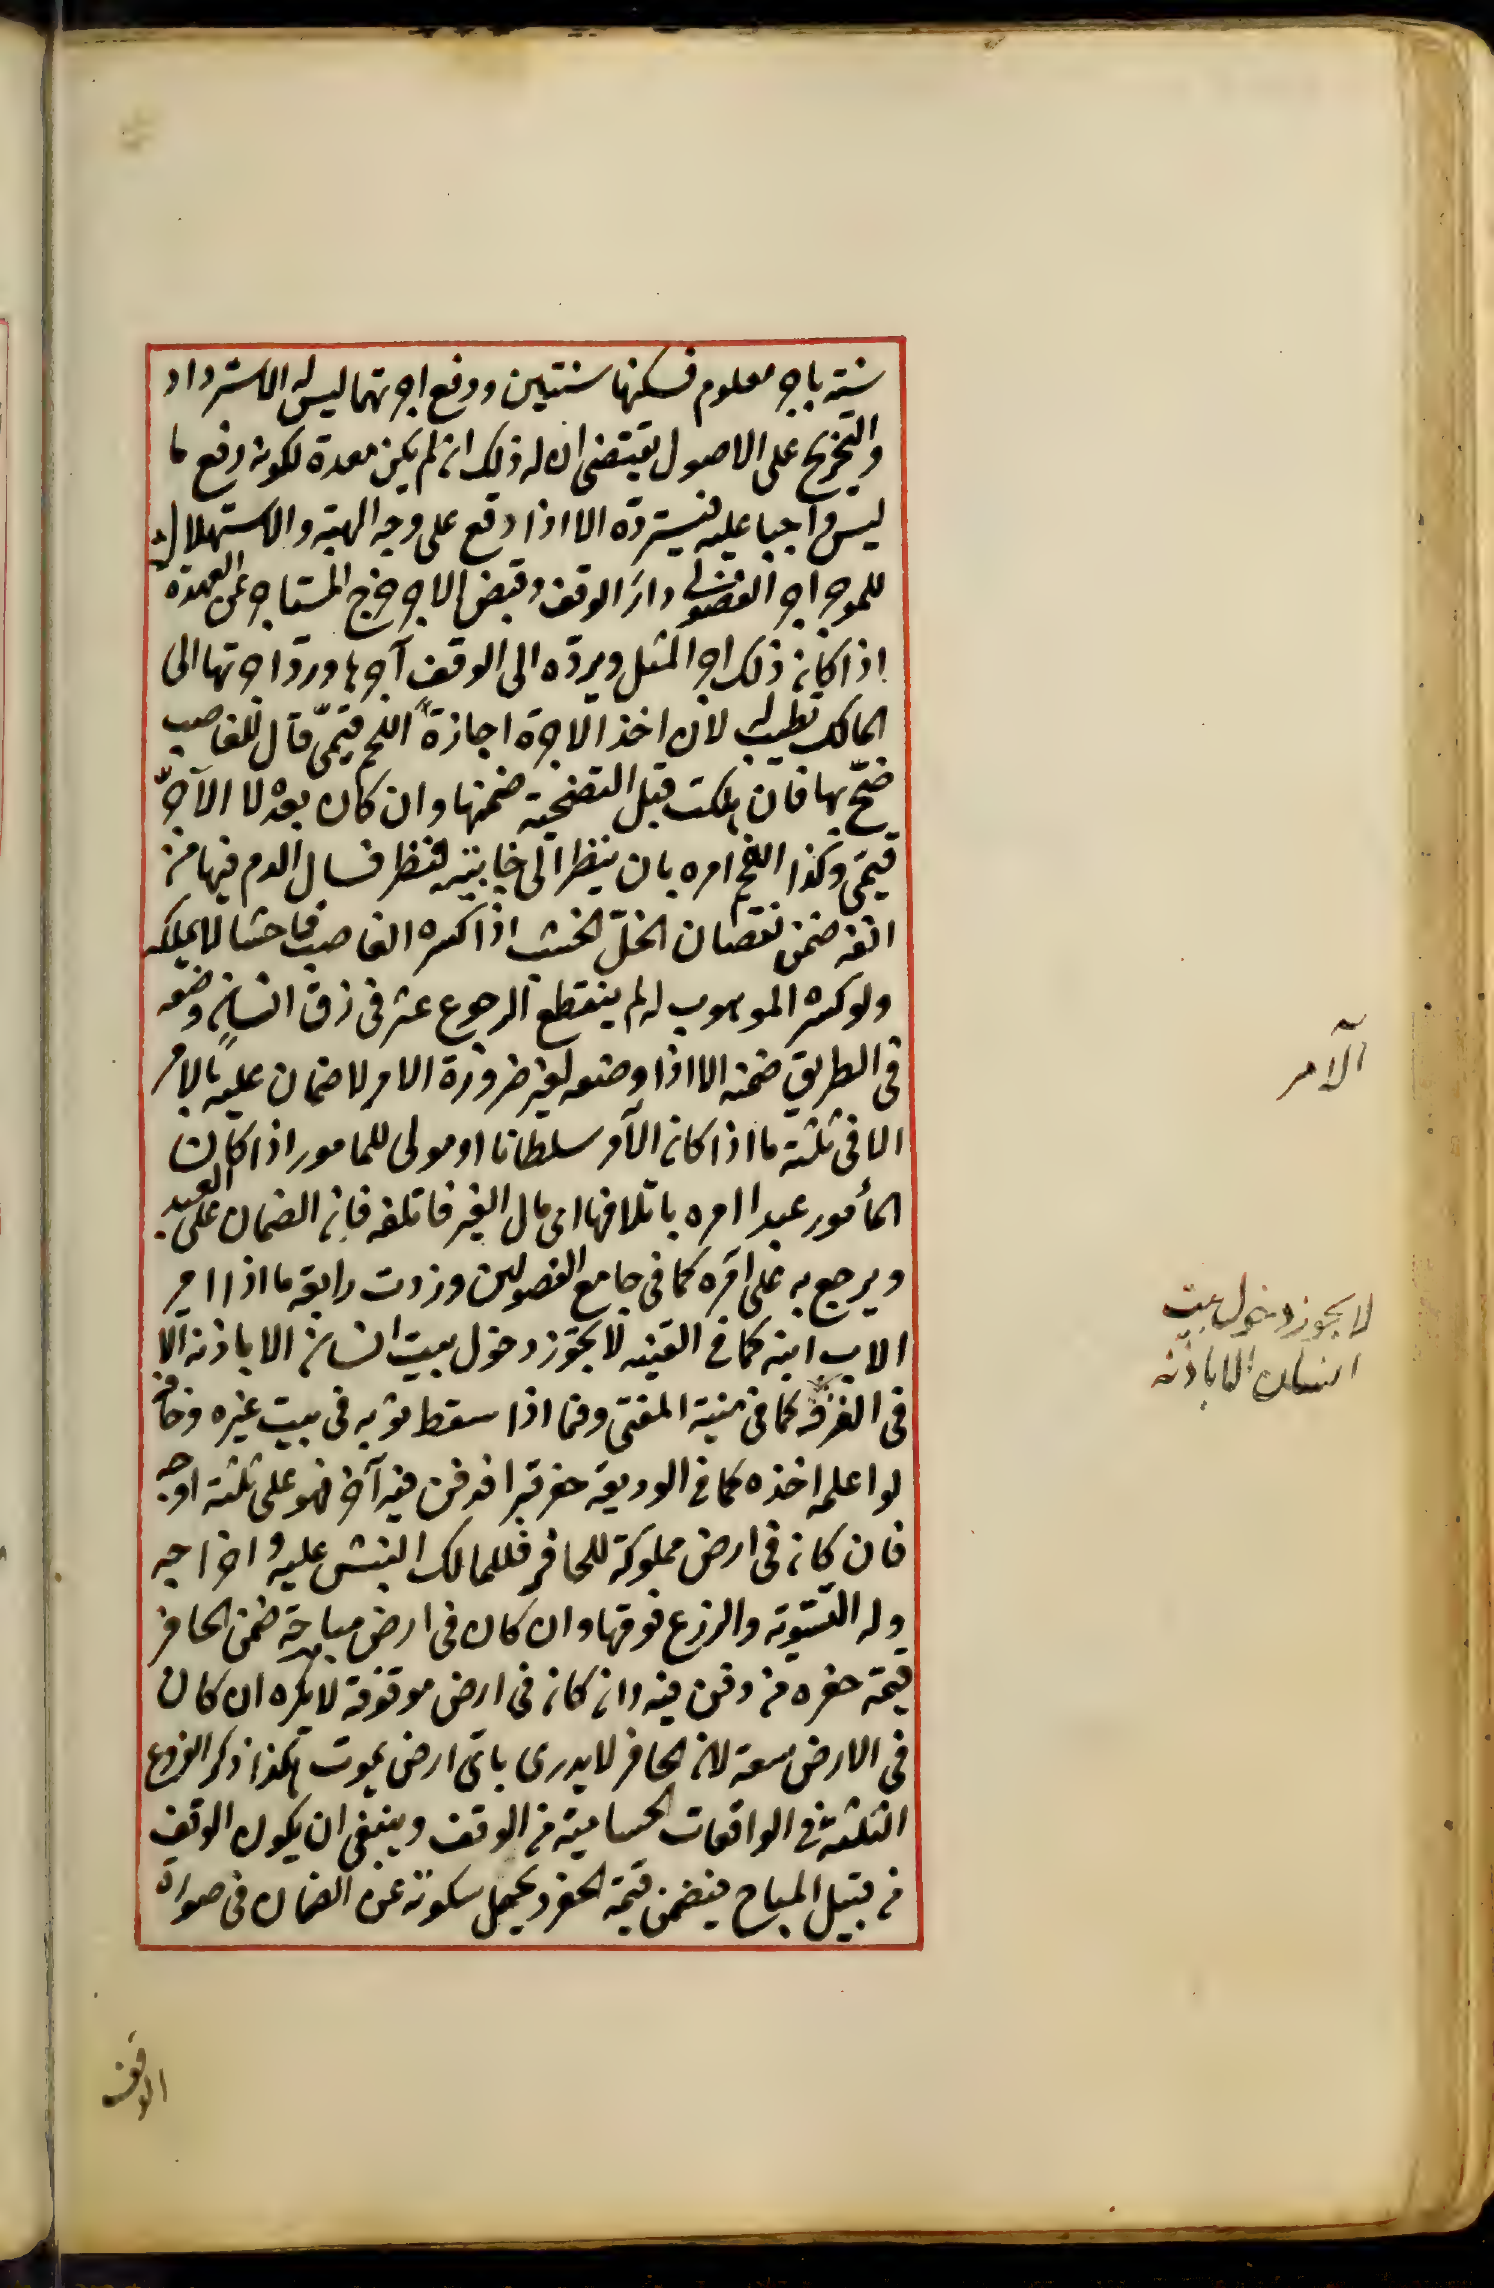 سنة باجر معلوم فسكنها سنتين ودفع اجرتهما ليس له الاسترداد
والتخريج على الاصول يقتضى ان له ذلك ان لم يكن معدة لكونه دفع ما
ليس واجبا عليه فيسترده الا اذا دفع على وجه الهبة والاستهلاك
للموجر اجر الفضولى دار الوقف وقبض الاجر خرج المستاجر عن العهدة
اذا كان ذلك اجر المثل ويرده الى الوقف آجرها ورد اجرتها الى
المالك تطيب له لان اخذ الاجرة اجازة اللحم قيمى قال للغاصب
ضح بها فان هلكت قبل التضحية ضمنها وان كان بعده لا الآجر
قيمى وكذا الفحم امره بان ينظر الى خابيته فنظر فسال الدم فيها من
انفه ضمن نقصان الخل الخشب اذا كسره الغاصب فاحشا لا يملكه
ولو كسره الموهوب له لم ينقطع الرجوع عثر فى زق انسان وضعه
فى الطريق ضمنه الا اذا وضعه لغير ضرورة الامر لا ضمان عليه بالامر
الا فى ثلثة ما اذا كان الآمر سلطانا او مولى للمامور اذا كان
المأمور عبدا امره باتلافها اى مال الغير فاتلفه فان الضمان على العبد
ويرجع به على آمره كما فى جامع الفصولين وزدت رابعة ما اذا امر
الاب ابنه كما فى القنية لا يجوز دخول بيت انسان الا باذنه الا
فى الغزو كما فى منية المفتى وفيما اذا سقط ثوبه فى بيت غيره وخاف
لو اعلمه اخذه كما فى الوديعة حفر قبرا فدفن فيه آخر فهو على ثلثة اوجه
فان كان فى ارض مملوكة للحافر فللمالك النبش عليه واخراجه
وله التسوية والزرع فوقها وان كان فى ارض مباحة ضمن الحافر
قيمة حفره من دفن فيه وان كان فى ارض موقوفة لا يكره ان كان
فى الارض سعة لان الحافر لا يدرى باى ارض يموت هكذا ذكر الفروع
الثلثة فى الواقعات الحسامية من الوقف وينبغى ان يكون الوقف
من قبيل المباح فيضمن قيمة الحفر ويحمل سكوته عن الضمان فى صورة
الآمر
لا يجوز دخول بيت
انسان الا باذنه
الوقف